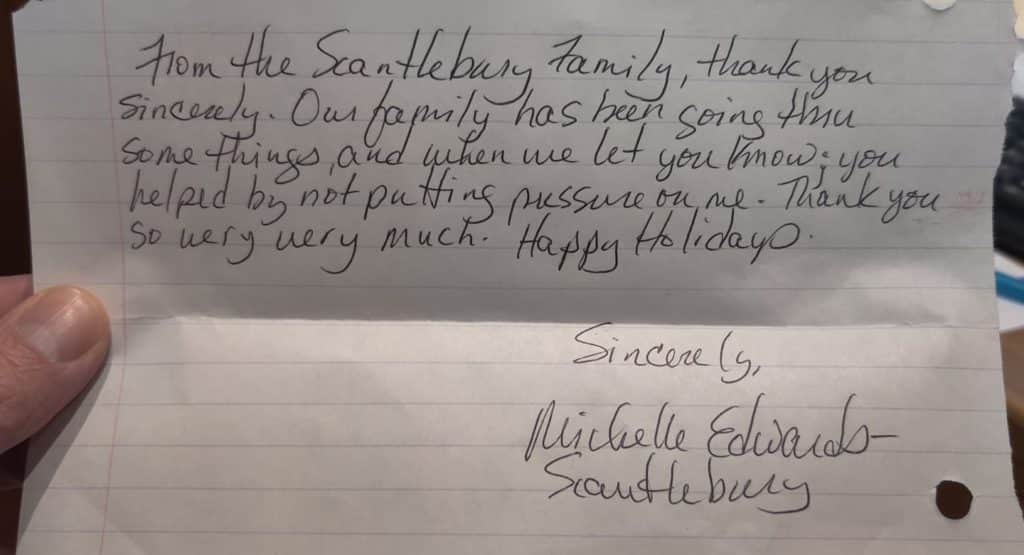 From the Scantlebury Family, thank you
sincerely. Our family has been going thru
some things, and when we let you know; you
helped by not putting pressure on me. Thank you
so very very much. Happy Holidays.
Sincerely,
Michelle Edwards-
Scantlebury